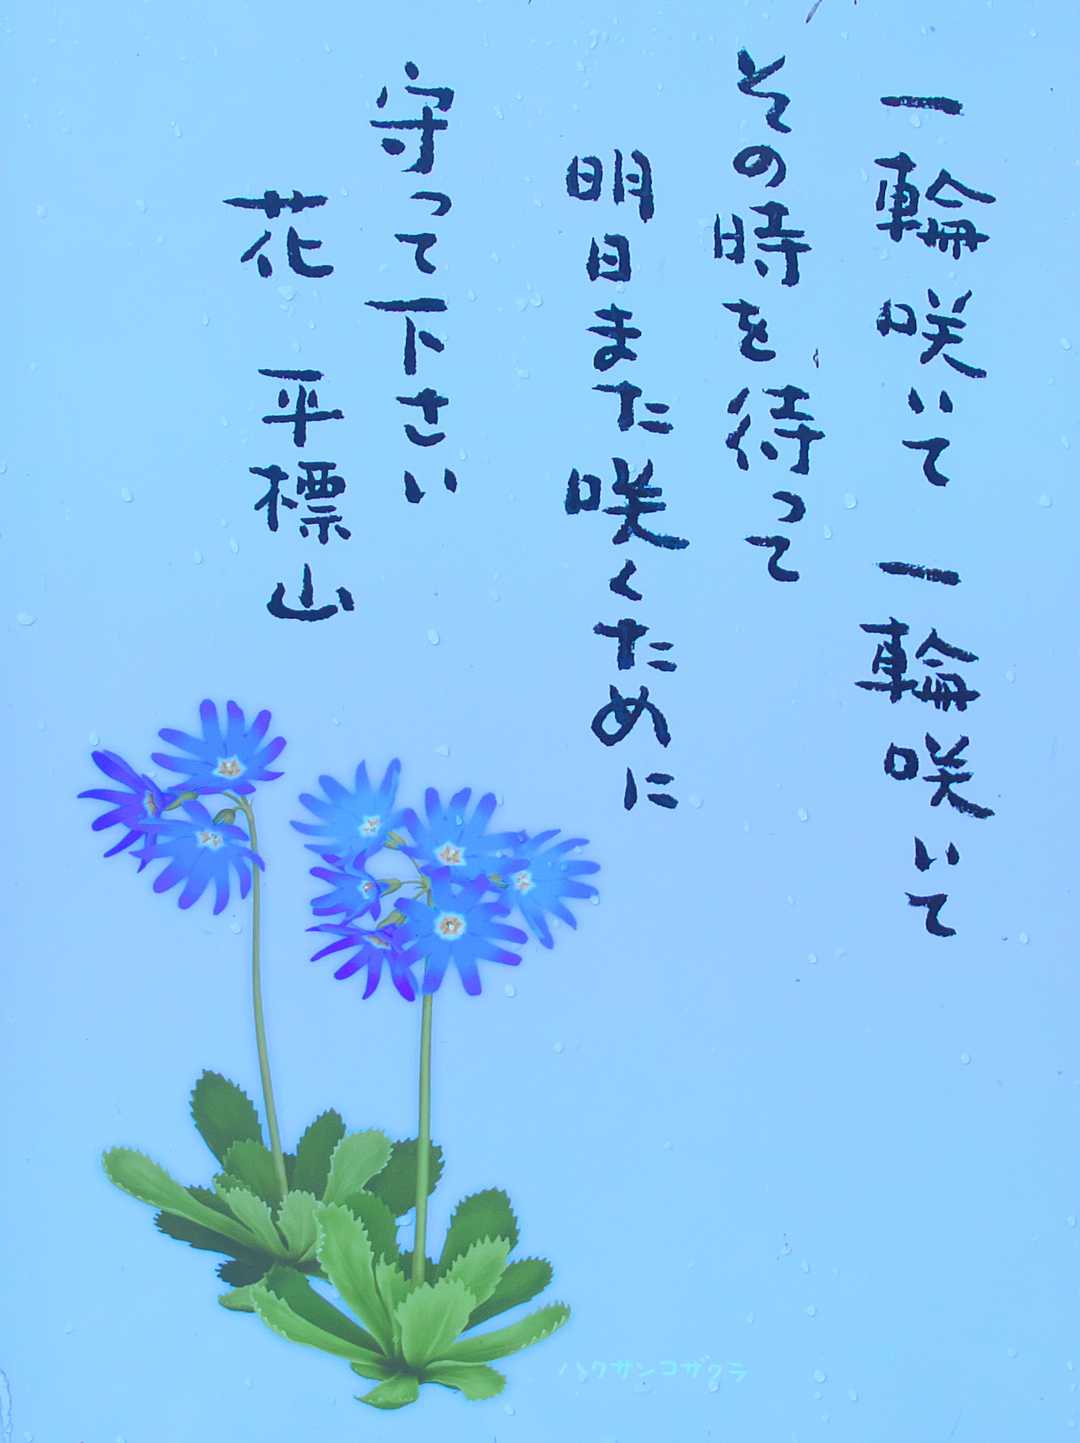 一輪咲いて　一輪咲いて
その時を待って
明日また咲くために
守って下さい
花　平標山
ハクサンコザクラ